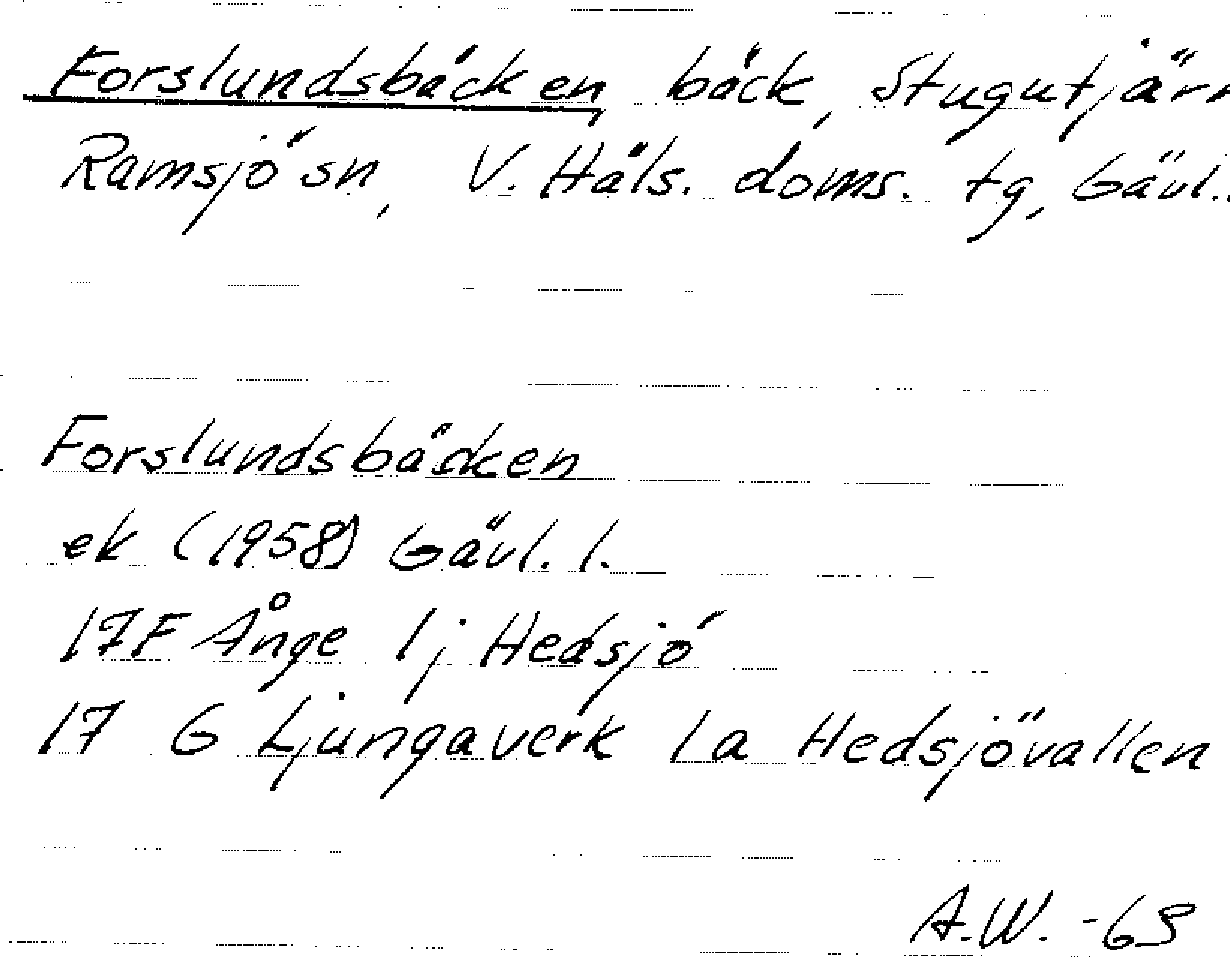 Forslundsbäcken, bäck, Stugutjärn
Ramsjö sn, V. Häls. doms. tg, Gävl.
Forslundsbäcken
ek (1958) Gävl. l.
17F Ånge 1j Hedsjö
17 G Ljungaverk 1a Hedsjövallen
A.W. -63